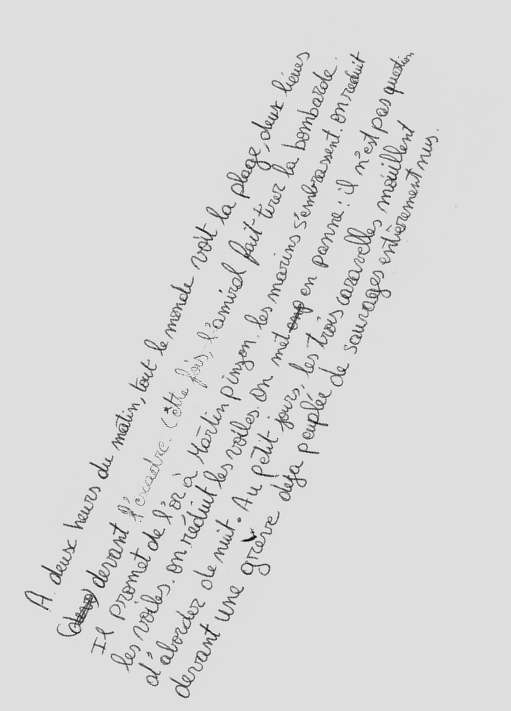 A deux heurs du matin, tout le monde voit la plage, deux lieues
devant l'escadre. Cette fois, l'amiral fait tirer la bombarde.
Il promet de l'or à Martin pinzon. les marins s'embrassent. on reduit
les voiles. on réduit les voiles. on met en panne : il n'est pas question
d'aborder de nuit. Au petit jours, les trois caravelles mouillent
devant une grève déja peuplée de sauvages entièrement nus.